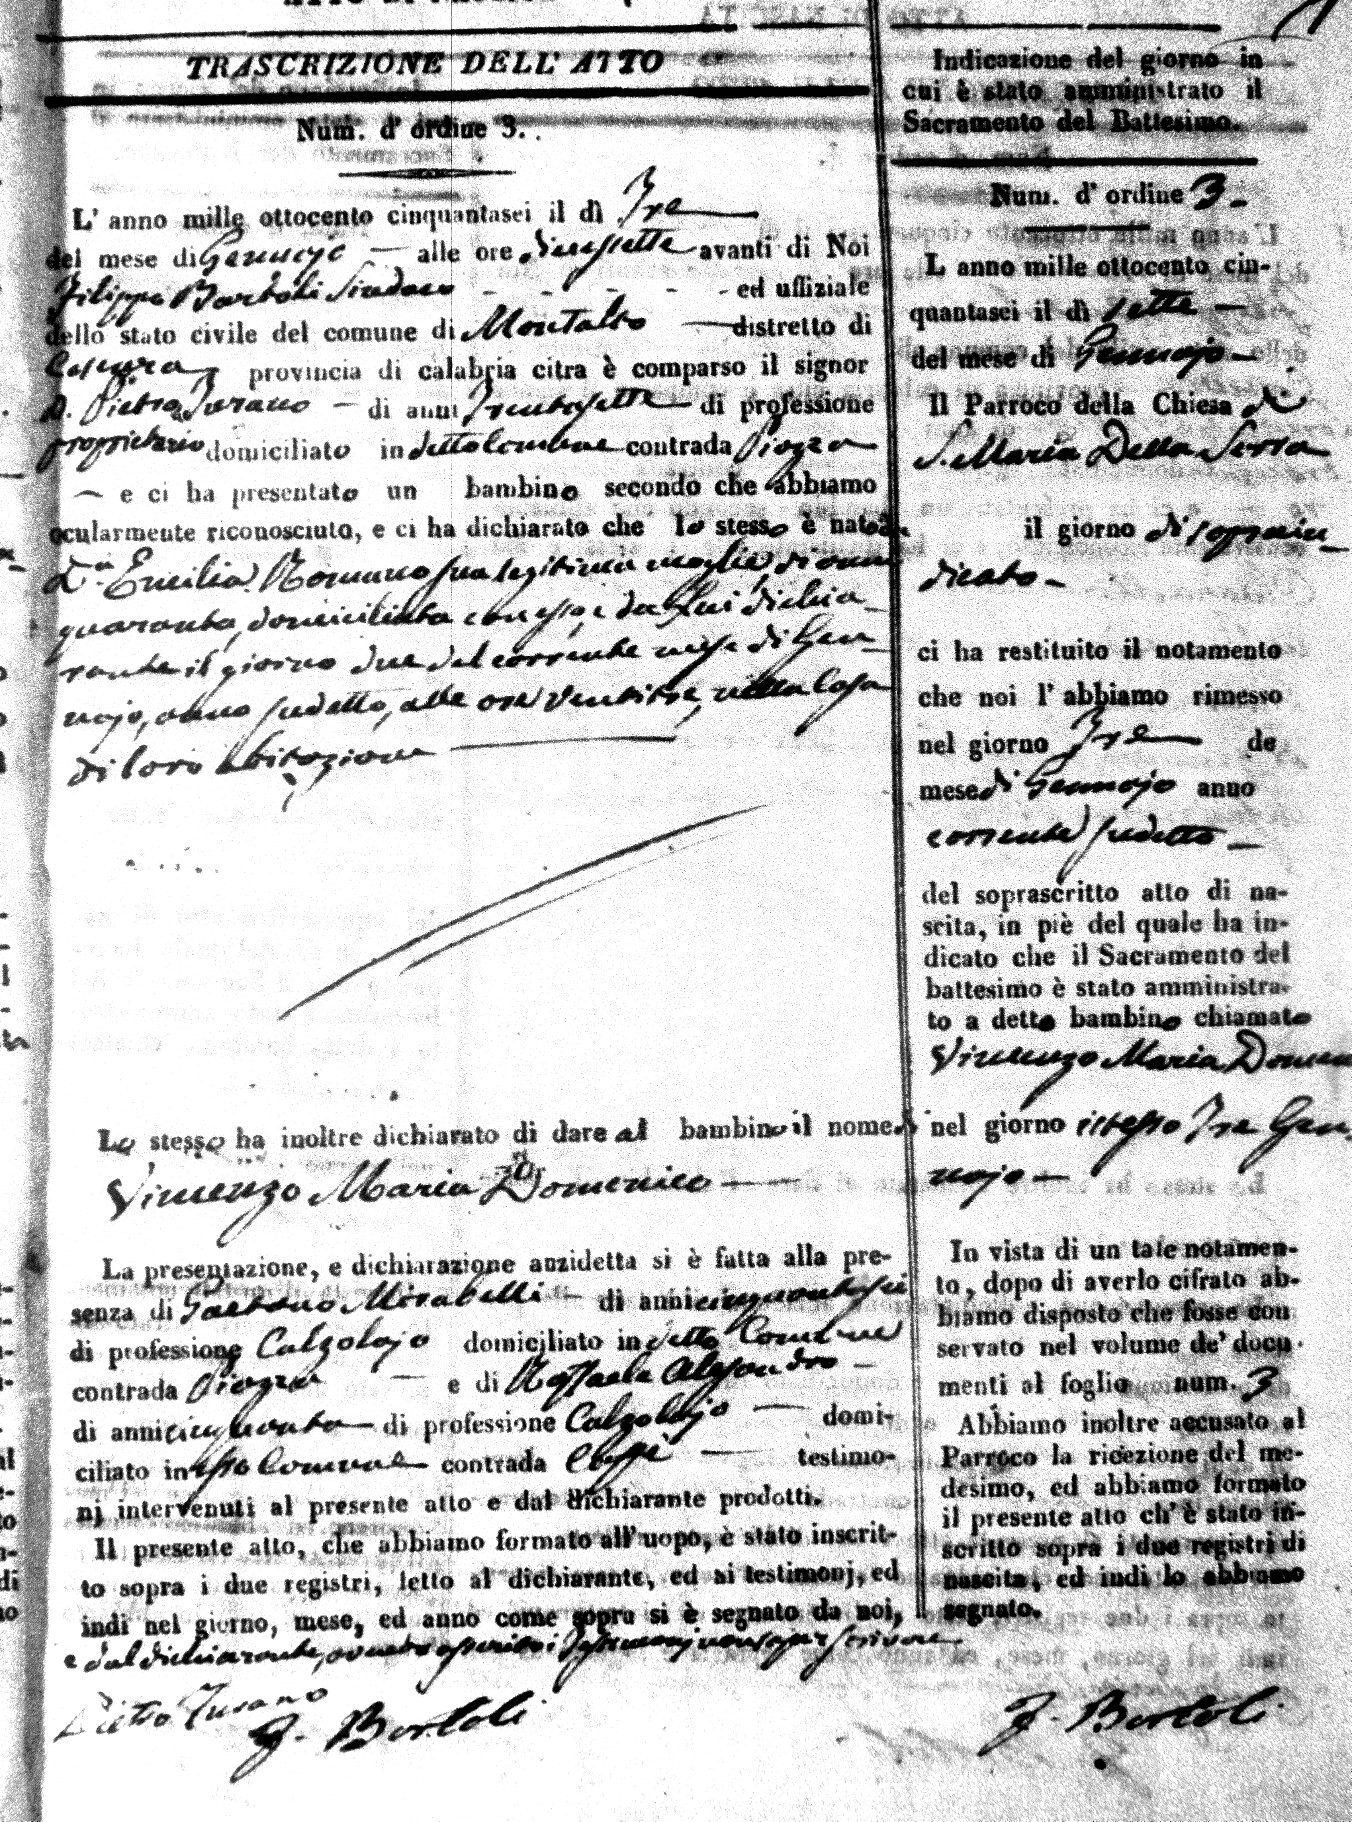 TRASCRIZIONE DELL' ATTO
Num. d' ordine 3.
L' anno mille ottocento cinquantasei il dì Tre
del mese di Gennajo — alle ore diecissette avanti di Noi
Filippo Bartoli Sindaco - - - - - ed uffiziale
dello stato civile del comune di Montalto — distretto di
Cosenza, provincia di calabria citra è comparso il signor
D. Pietro Turano — di anni Trentasette — di professione
proprietario domiciliato in detto Comune contrada Piazza
— e ci ha presentato un bambino secondo che abbiamo
ocularmente riconosciuto, e ci ha dichiarato che lo stesso è nato da
D.a Emilia Romano sua legitima moglie di anni
quaranta, domiciliata con esso, e da Lui dichia-
rante il giorno due del corrente mese di Gen-
najo, anno sudetto, alle ore ventitre, nella Casa
di loro abitazione
Lo stesso ha inoltre dichiarato di dare al bambino il nome di
Vincenzo Maria Domenico ——
La presentazione, e dichiarazione anzidetta si è fatta alla pre-
senza di Gaetano Mirabelli — di anni cinquantasei
di professione Calzolajo domiciliato in detto Comune
contrada Piazza — e di Raffaele Alessandro —
di anni cinquanta — di professione Calzolajo — domi-
ciliato in esso Comune contrada — testimo-
nj intervenuti al presente atto e dal dichiarante prodotti.
Il presente atto, che abbiamo formato all' uopo, è stato inscrit-
to sopra i due registri, letto al dichiarante, ed ai testimonj, ed
indi nel giorno, mese, ed anno come sopra si è segnato da noi,
e dal dichiarante, avendo asserito i Testimonj non saper scrivere
Pietro Turano
F. Bartoli
Indicazione del giorno in
cui è stato amministrato il
Sacramento del Battesimo.
Num. d' ordine 3.
L anno mille ottocento cin-
quantasei il dì sette —
del mese di Gennajo —
Il Parroco della Chiesa di
S. Maria Della Serra
il giorno di sopra in-
dicato —
ci ha restituito il notamento
che noi l' abbiamo rimesso
nel giorno Tre de
mese di Gennajo anno
corrente sudetto —
del soprascritto atto di na-
scita, in piè del quale ha in-
dicato che il Sacramento del
battesimo è stato amministra-
to a detto bambino chiamato
Vincenzo Maria Domen
nel giorno istesso Tre Gen-
najo —
In vista di un tale notamen-
to, dopo di averlo cifrato ab-
biamo disposto che fosse con
servato nel volume de' docu-
menti al foglio num. 3
Abbiamo inoltre accusato al
Parroco la ricezione del me-
desimo, ed abbiamo formato
il presente atto ch' è stato in-
scritto sopra i due registri di
nascita, ed indi lo abbiamo
segnato.
F. Bartoli